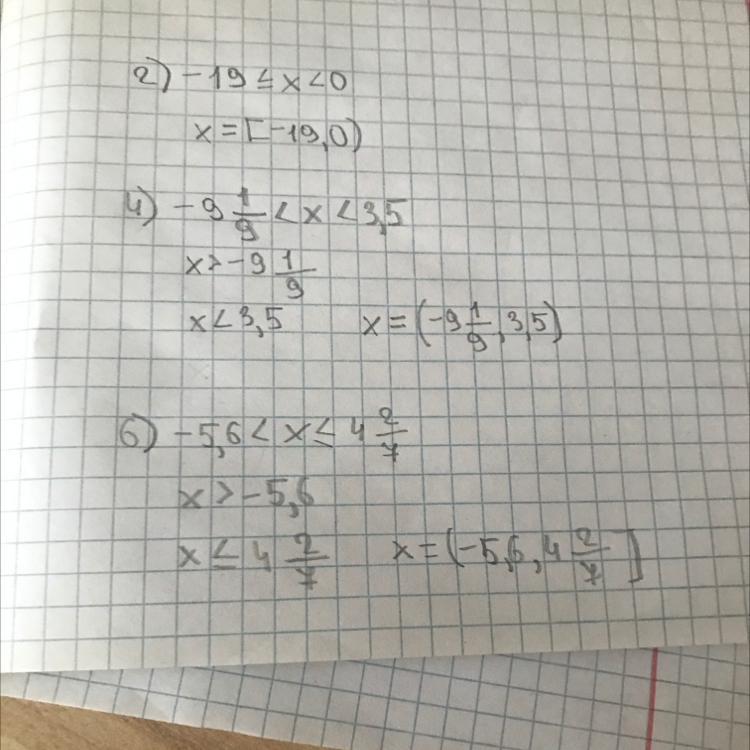 2) -19 ≤ x < 0
x = [-19,0)
4) -9 1/9 < x < 3,5
x > -9 1/9
x < 3,5 x = (-9 1/9, 3,5)
6) -5,6 < x ≤ 4 2/7
x > -5,6
x ≤ 4 2/7 x = (-5,6, 4 2/7]